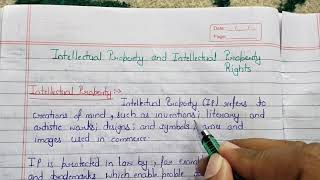 Date
Page
Intellectual Property and Intellectual Property
Rights
Intellectual Property:-
Intellectual Property (IP) refers to
creations of mind, such as inventions; literary and
artistic works; designs; and symbols, and
images used in commerce.
IP is protected in law by, for exam
and trademarks which enable people